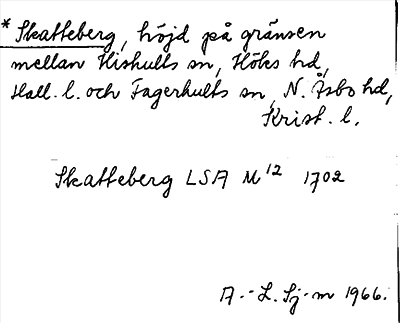 * Skatteberg, höjd på gränsen
mellan Hishults sn, Höks hd,
Hall. l. och Fagerhults sn, N. Åsbo hd,
Krist. l.
Skatteberg LSA M¹² 1702
A.-L. Sj-m 1966.